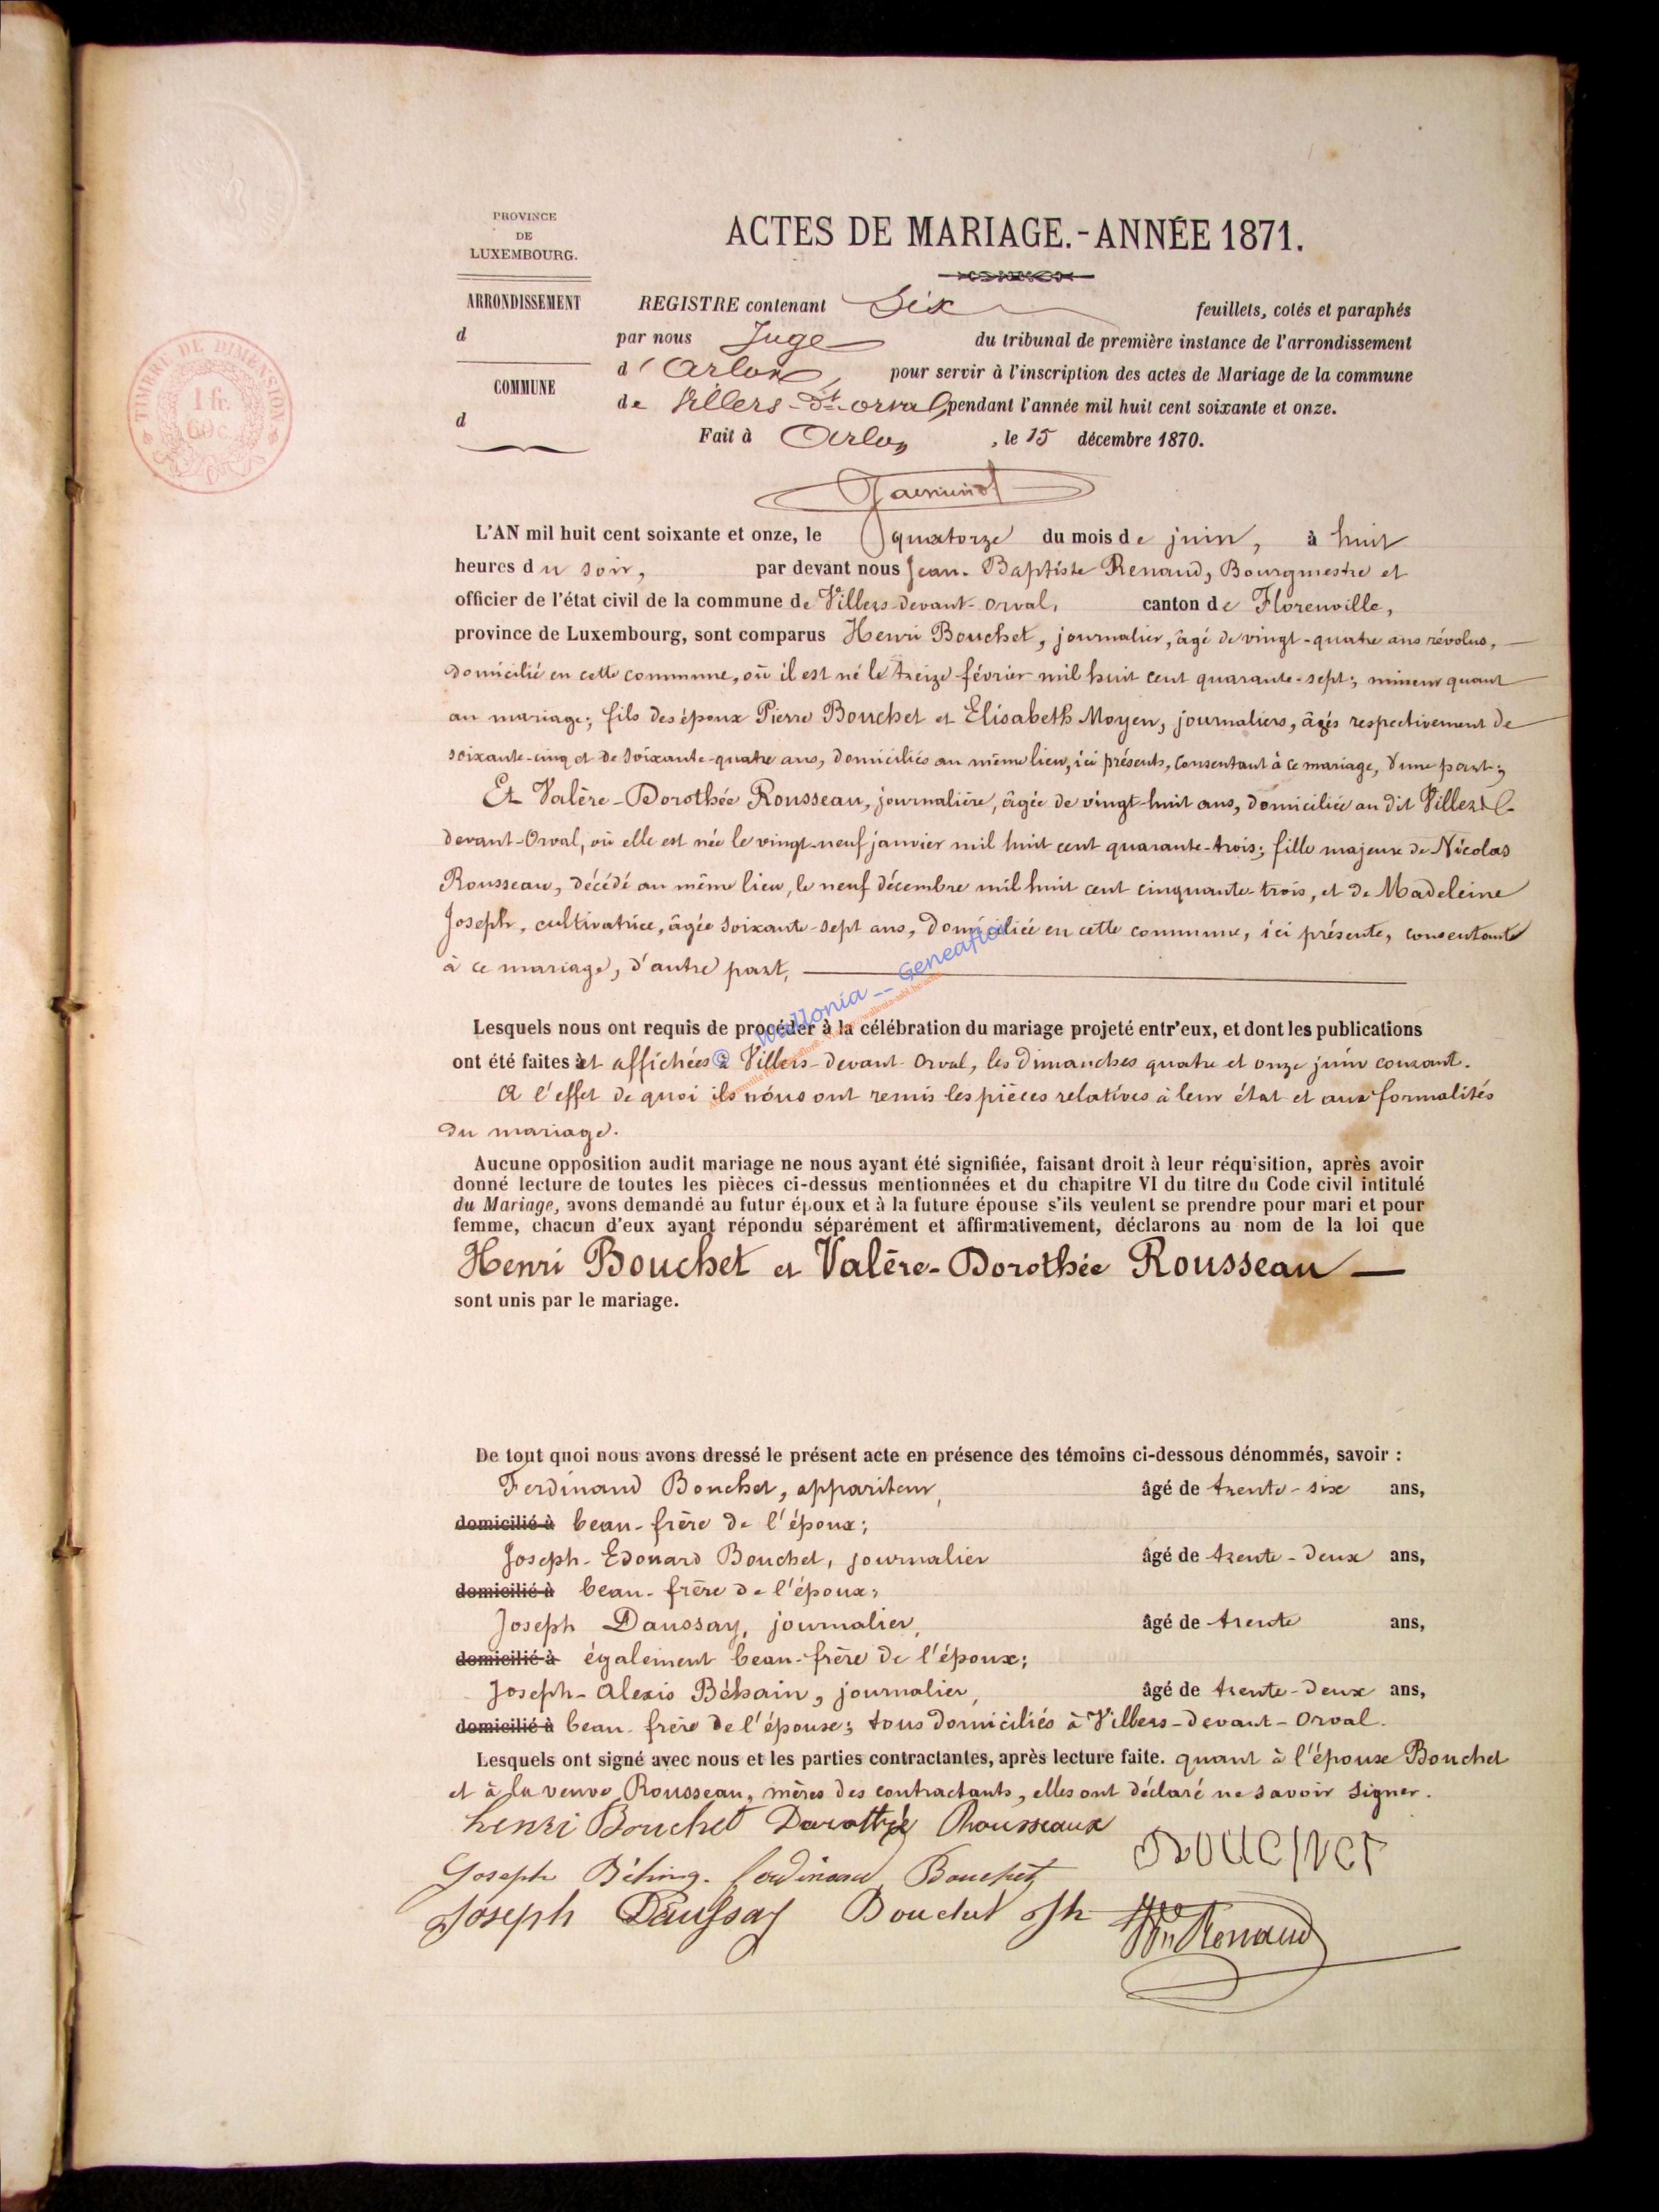 PROVINCE
DE
LUXEMBOURG.
ACTES DE MARIAGE.-ANNÉE 1871.
ARRONDISSEMENT
d
COMMUNE
d
TIMBRE DE DIMENSION
1 fr.
60 c.
REGISTRE contenant Six feuillets, cotés et paraphés
par nous Juge du tribunal de première instance de l'arrondissement
d'Arlon, pour servir à l'inscription des actes de Mariage de la commune
de Villers-dt-orval, pendant l'année mil huit cent soixante et onze.
Fait à Arlon, le 15 décembre 1870.
L'AN mil huit cent soixante et onze, le quatorze du mois de juin, à huit
heures du soir, par devant nous Jean-Baptiste Renaud, Bourgmestre et
officier de l'état civil de la commune de Villers-devant-orval, canton de Florenville,
province de Luxembourg, sont comparus Henri Bouchet, journalier, âgé de vingt-quatre ans révolus,
domicilié en cette commune, où il est né le treize février mil huit cent quarante-sept; mineur quant
au mariage; fils des époux Pierre Bouchet et Elisabeth Moyen, journaliers, âgés respectivement de
soixante-cinq et de soixante-quatre ans, domiciliés au même lieu, ici présents, consentant à ce mariage, d'une part;
Et Valère-Dorothée Rousseau, journalière, âgée de vingt-huit ans, domiciliée au dit Villers-
devant-Orval, où elle est née le vingt-neuf janvier mil huit cent quarante-trois; fille majeure de Nicolas
Rousseau, décédé au même lieu, le neuf décembre mil huit cent cinquante-trois, et de Madeleine
Joseph, cultivatrice, âgée soixante-sept ans, domiciliée en cette commune, ici présente, consentante
à ce mariage, d'autre part,
© Wallonia -- Geneaflor
Lesquels nous ont requis de procéder à la célébration du mariage projeté entr'eux, et dont les publications
ont été faites et affichées à Villers-devant-Orval, les dimanches quatre et onze juin courant.
A l'effet de quoi ils nous ont remis les pièces relatives à leur état et aux formalités
du mariage.
Aucune opposition audit mariage ne nous ayant été signifiée, faisant droit à leur réquisition, après avoir
donné lecture de toutes les pièces ci-dessus mentionnées et du chapitre VI du titre du Code civil intitulé
du Mariage, avons demandé au futur époux et à la future épouse s'ils veulent se prendre pour mari et pour
femme, chacun d'eux ayant répondu séparément et affirmativement, déclarons au nom de la loi que
Henri Bouchet et Valère-Dorothée Rousseau
sont unis par le mariage.
De tout quoi nous avons dressé le présent acte en présence des témoins ci-dessous dénommés, savoir :
Ferdinand Bouchet, appariteur, âgé de trente-six ans,
domicilié à beau-frère de l'époux;
Joseph-Edouard Bouchet, journalier âgé de trente-deux ans,
domicilié à beau-frère de l'époux;
Joseph Daussay, journalier, âgé de trente ans,
domicilié à également beau-frère de l'époux;
Joseph-Alexis Béhain, journalier, âgé de trente-deux ans,
domicilié à beau-frère de l'épouse; tous domiciliés à Villers-devant-Orval.
Lesquels ont signé avec nous et les parties contractantes, après lecture faite. quant à l'épouse Bouchet
et à la veuve Rousseau, mères des contractants, elles ont déclaré ne savoir signer.
henri Bouchet Dorothée Rousseaux
Bouchet
Joseph Béhing. ferdinand Bouchet
Joseph Daussay Bouchet Jh Renaud